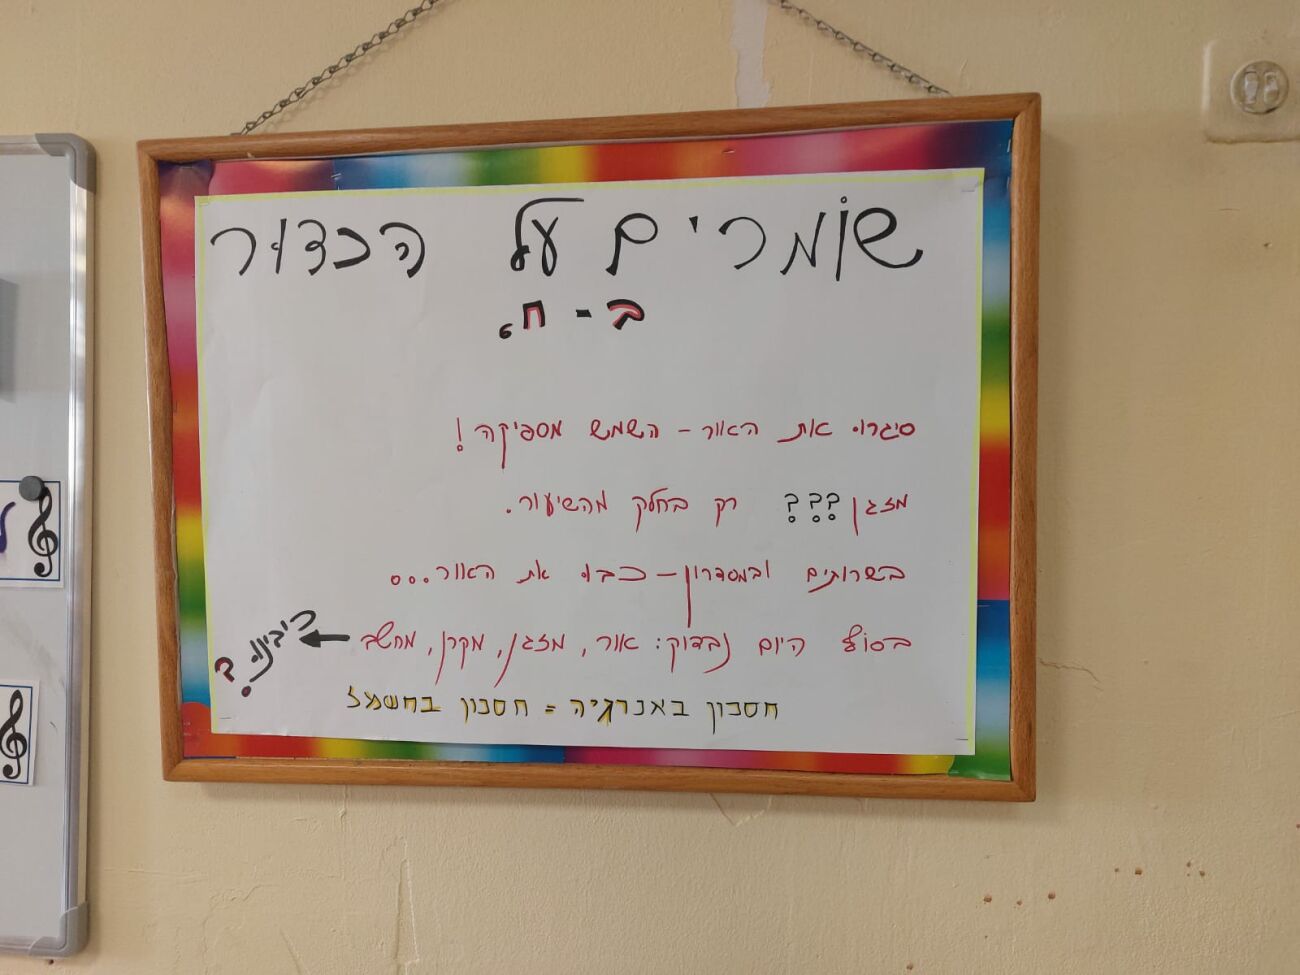 שומרים על הכדור
ב - ח'
סיגרו את האור - השמש מספיקה!
מזגן ??? רק בחלק מהשיעור.
בשרותים ובמסדרון - כבו את האור...
בסוף היום נבדוק: אור, מזגן, מקרן, מחשב
כיבינו?
חסכון באנרגיה = חסכון בחשמל